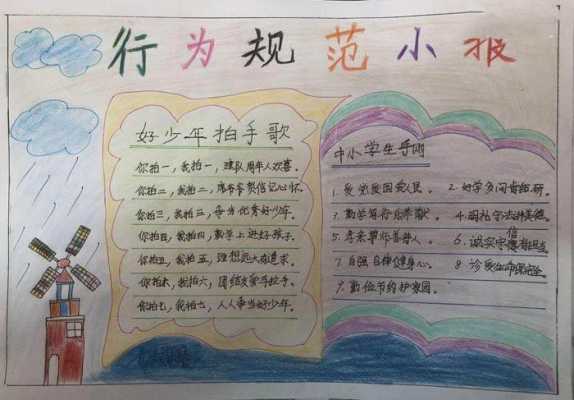 行为规范小报
好少年拍手歌
你拍一，我拍一，建队周年人欢喜。
你拍二，我拍二，爷爷贺信记心怀。
你拍三，我拍三，争当优秀好少年。
你拍四，我拍四，勤学上进好孩子。
你拍五，我拍五，理想远大有追求。
你拍六，我拍六，团结友爱手拉手。
你拍七，我拍七，人人争当好少年。
中小学生守则
1. 爱党爱国爱人民。 2. 好学多问肯钻研。
3. 勤劳笃行乐奉献。 4. 明礼守法讲美德。
5. 孝亲尊师善待人。 6. 诚实守信有担当
7. 自强自律健身心。 8. 珍爱生命保安全
9. 勤俭节约护家园。